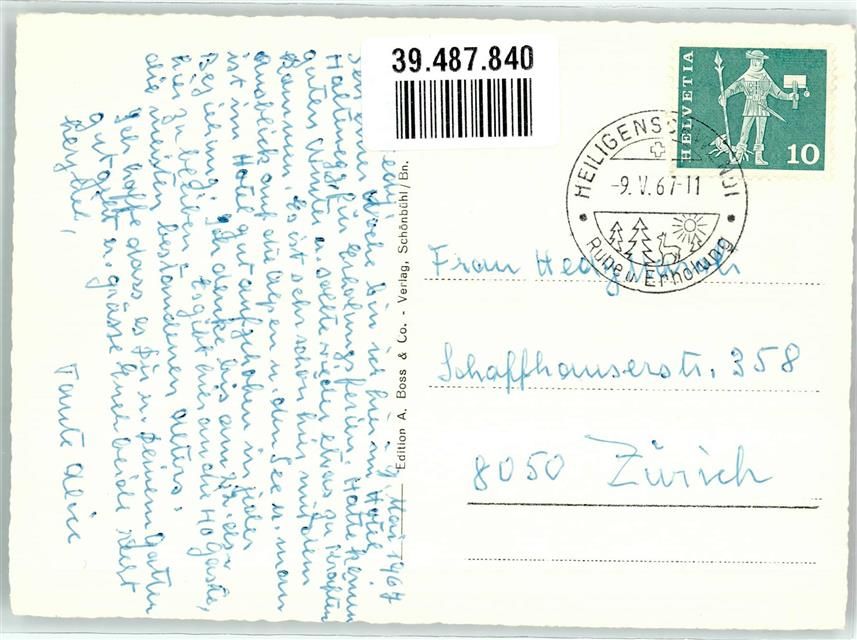 39.487.840
HELVETIA
10
HEILIGENSCHWENDI
-9.V.67-11
Ruhe u. Erholung
Edition A. Boss & Co. - Verlag, Schönbühl/Bn.
Frau Hedy
Schaffhauserstr. 358
8050 Zürich
Mai 1967
bin ich hier im Hotel
Haltenegg für Erholungsferien. Hatte keinen
guten Winter u. sollte wieder etwas zu Kräften
kommen. Es ist sehr schön hier mit dem
Ausblick auf die Alpen u. den See u. man
ist im Hotel gut aufgehoben in jeder
Beziehung. Ich denke bis
hier zu bleiben. Es gibt hier an die 40 Gäste,
die meisten bestandenen Alters.
Ich hoffe dass es Dir u. Deinem Gatten
gut geht u. grüsse Euch beide recht
herzlich,
Tante